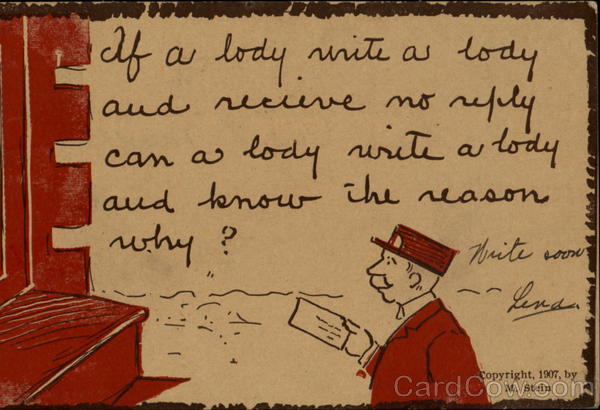 If a body write a body
and recieve no reply
can a body write a body
and know the reason
why ?
Write soon
Copyright, 1907, by
M. Stein
CardCow.com